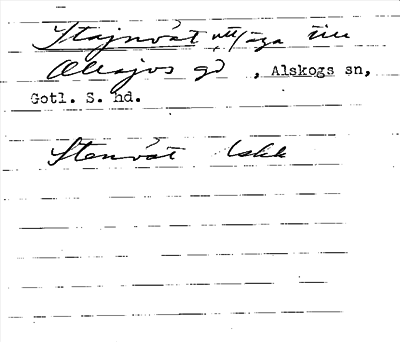 Stajnvät utt/äga till
Allajvs gd, Alskogs sn,
Gotl. S. hd.
Stenvät Lskk